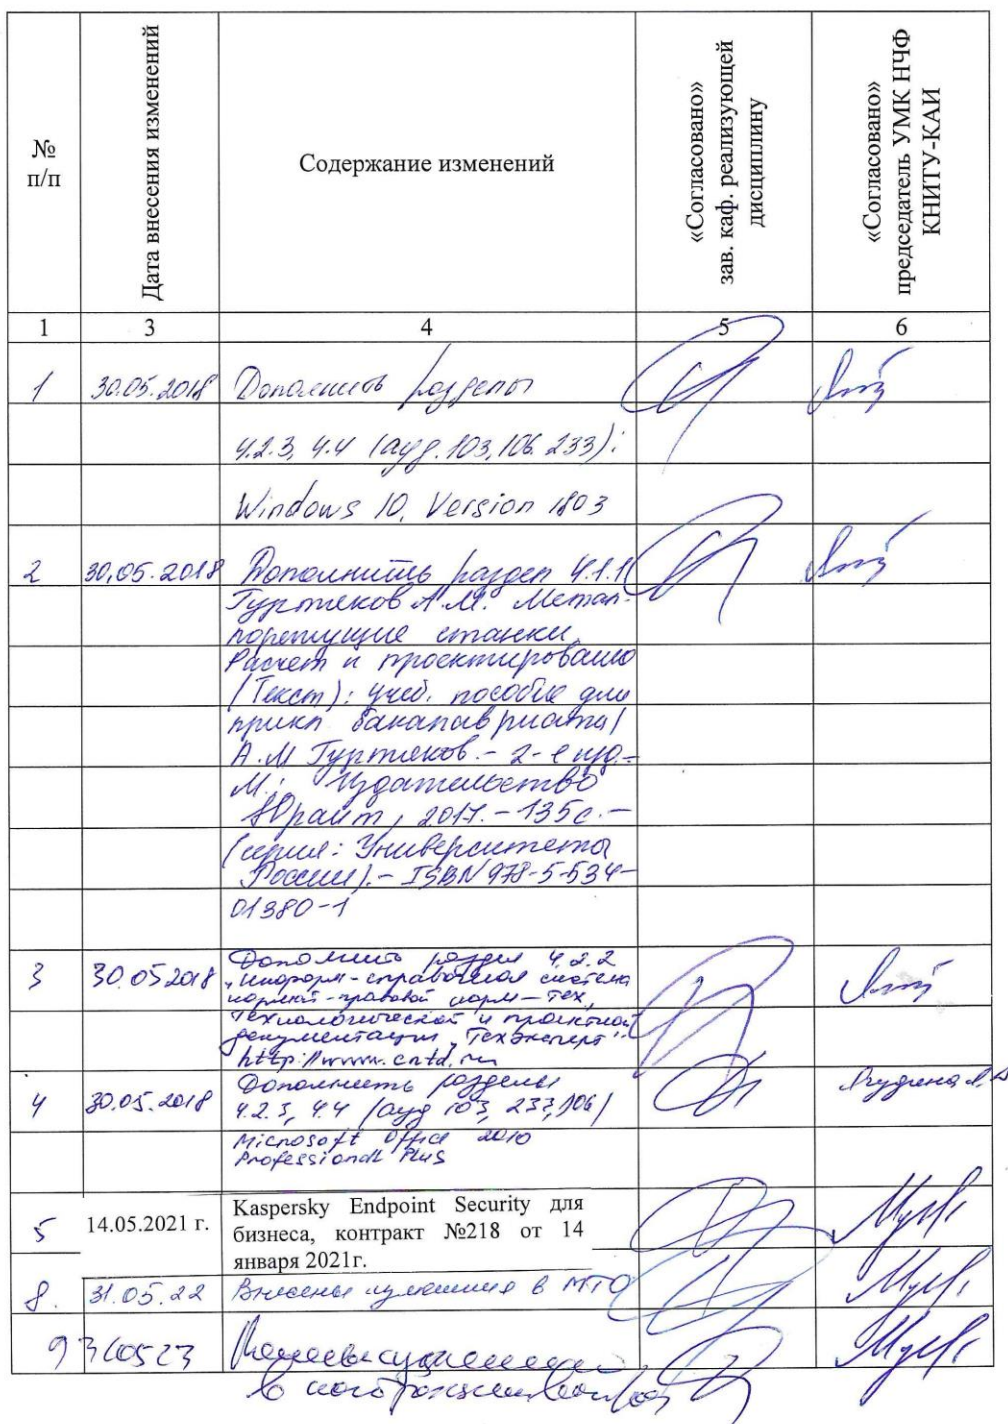 №
п/п
Дата внесения изменений
Содержание изменений
«Согласовано»
зав. каф. реализующей
дисциплину
«Согласовано»
председатель УМК НЧФ
КНИТУ-КАИ
1 3 4 5 6
1 30.05.2018 Дополнить разделы
4.2.3, 4.4 (ауд. 103, 106, 233):
Windows 10, Version 1803
2 30.05.2018 Дополнить раздел 4.1.1
Гуртяков А.М. Метал-
лорежущие станки.
Расчет и проектирование
(Текст): учеб. пособие для
прикл бакалавриата/
А.М Гуртяков. - 2-е изд. -
М.: Издательство
Юрайт, 2017. - 135с. -
(серия: Университеты
России). - ISBN 978-5-534-
01380-1
3 30.05.2018 Дополнить раздел 4.2.2
"информ-справочная система
нормат-правовой норм-тех,
технологической и проектной
документации "Техэксперт"
http://www.cntd.ru
4 30.05.2018 Дополнить разделы
4.2.3, 4.4 (ауд 103, 233, 106)
Microsoft Office 2010
Professional Plus
5 14.05.2021 г. Kaspersky Endpoint Security для
бизнеса, контракт №218 от 14
января 2021г.
8. 31.05.22 Внесены изменения в МТО
9 310523